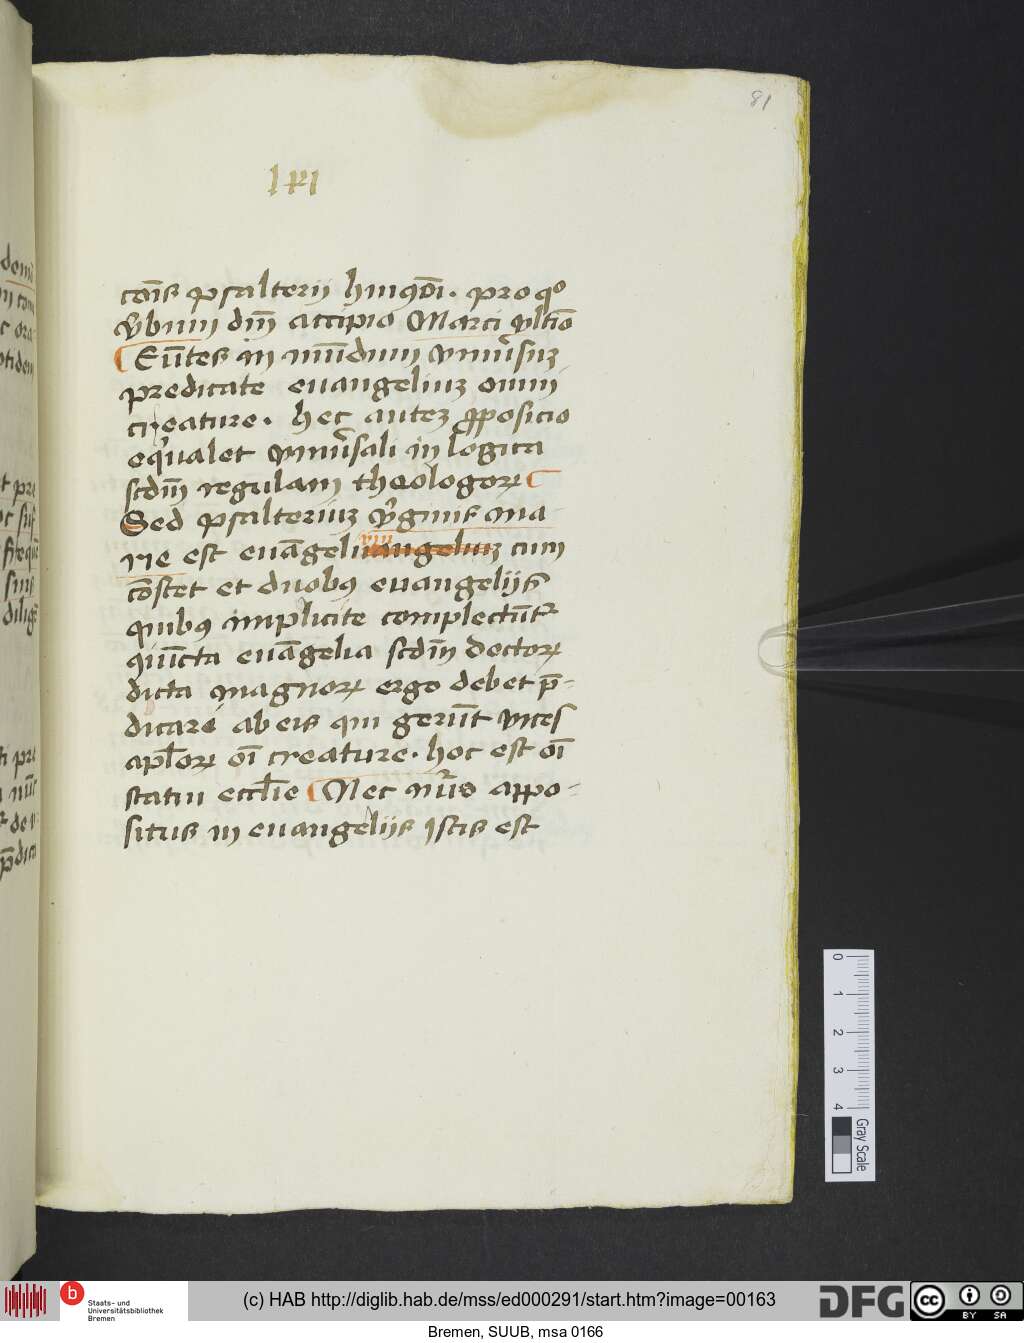 81
lxxi
cōis psalterii hmōi. pro qo
v̄bum dm̄ accipio Marci vltīo
Eūtes in mūdum vniūsuȝ
predicate euangeliuȝ omni
creature. hec auteȝ ꝓposicio
eqͥualet vniūsali in logica
scdm̄ regulam theologoꝝ
Sed psalteriuȝ v̄ginis ma
rie est euāgeliuangeliuȝ cum
cōstet et duobꝰ euangelijs
quibꝰ implicite complectūtʳ
quīcta euāgelia scdm̄ doctoꝝ
dicta magnoꝝ ergo debet p̄-
dicare ab eis qui gerūt vices
apl̄oꝝ oī creature. hoc est oī
statui eccl̄ie Nec nūo appo-
situs in euangelijs istis est
0 1 2 3 4
Gray Scale
b
Staats- und
Universitätsbibliothek
Bremen
(c) HAB http://diglib.hab.de/mss/ed000291/start.htm?image=00163
DFG
cc BY SA
Bremen, SUUB, msa 0166